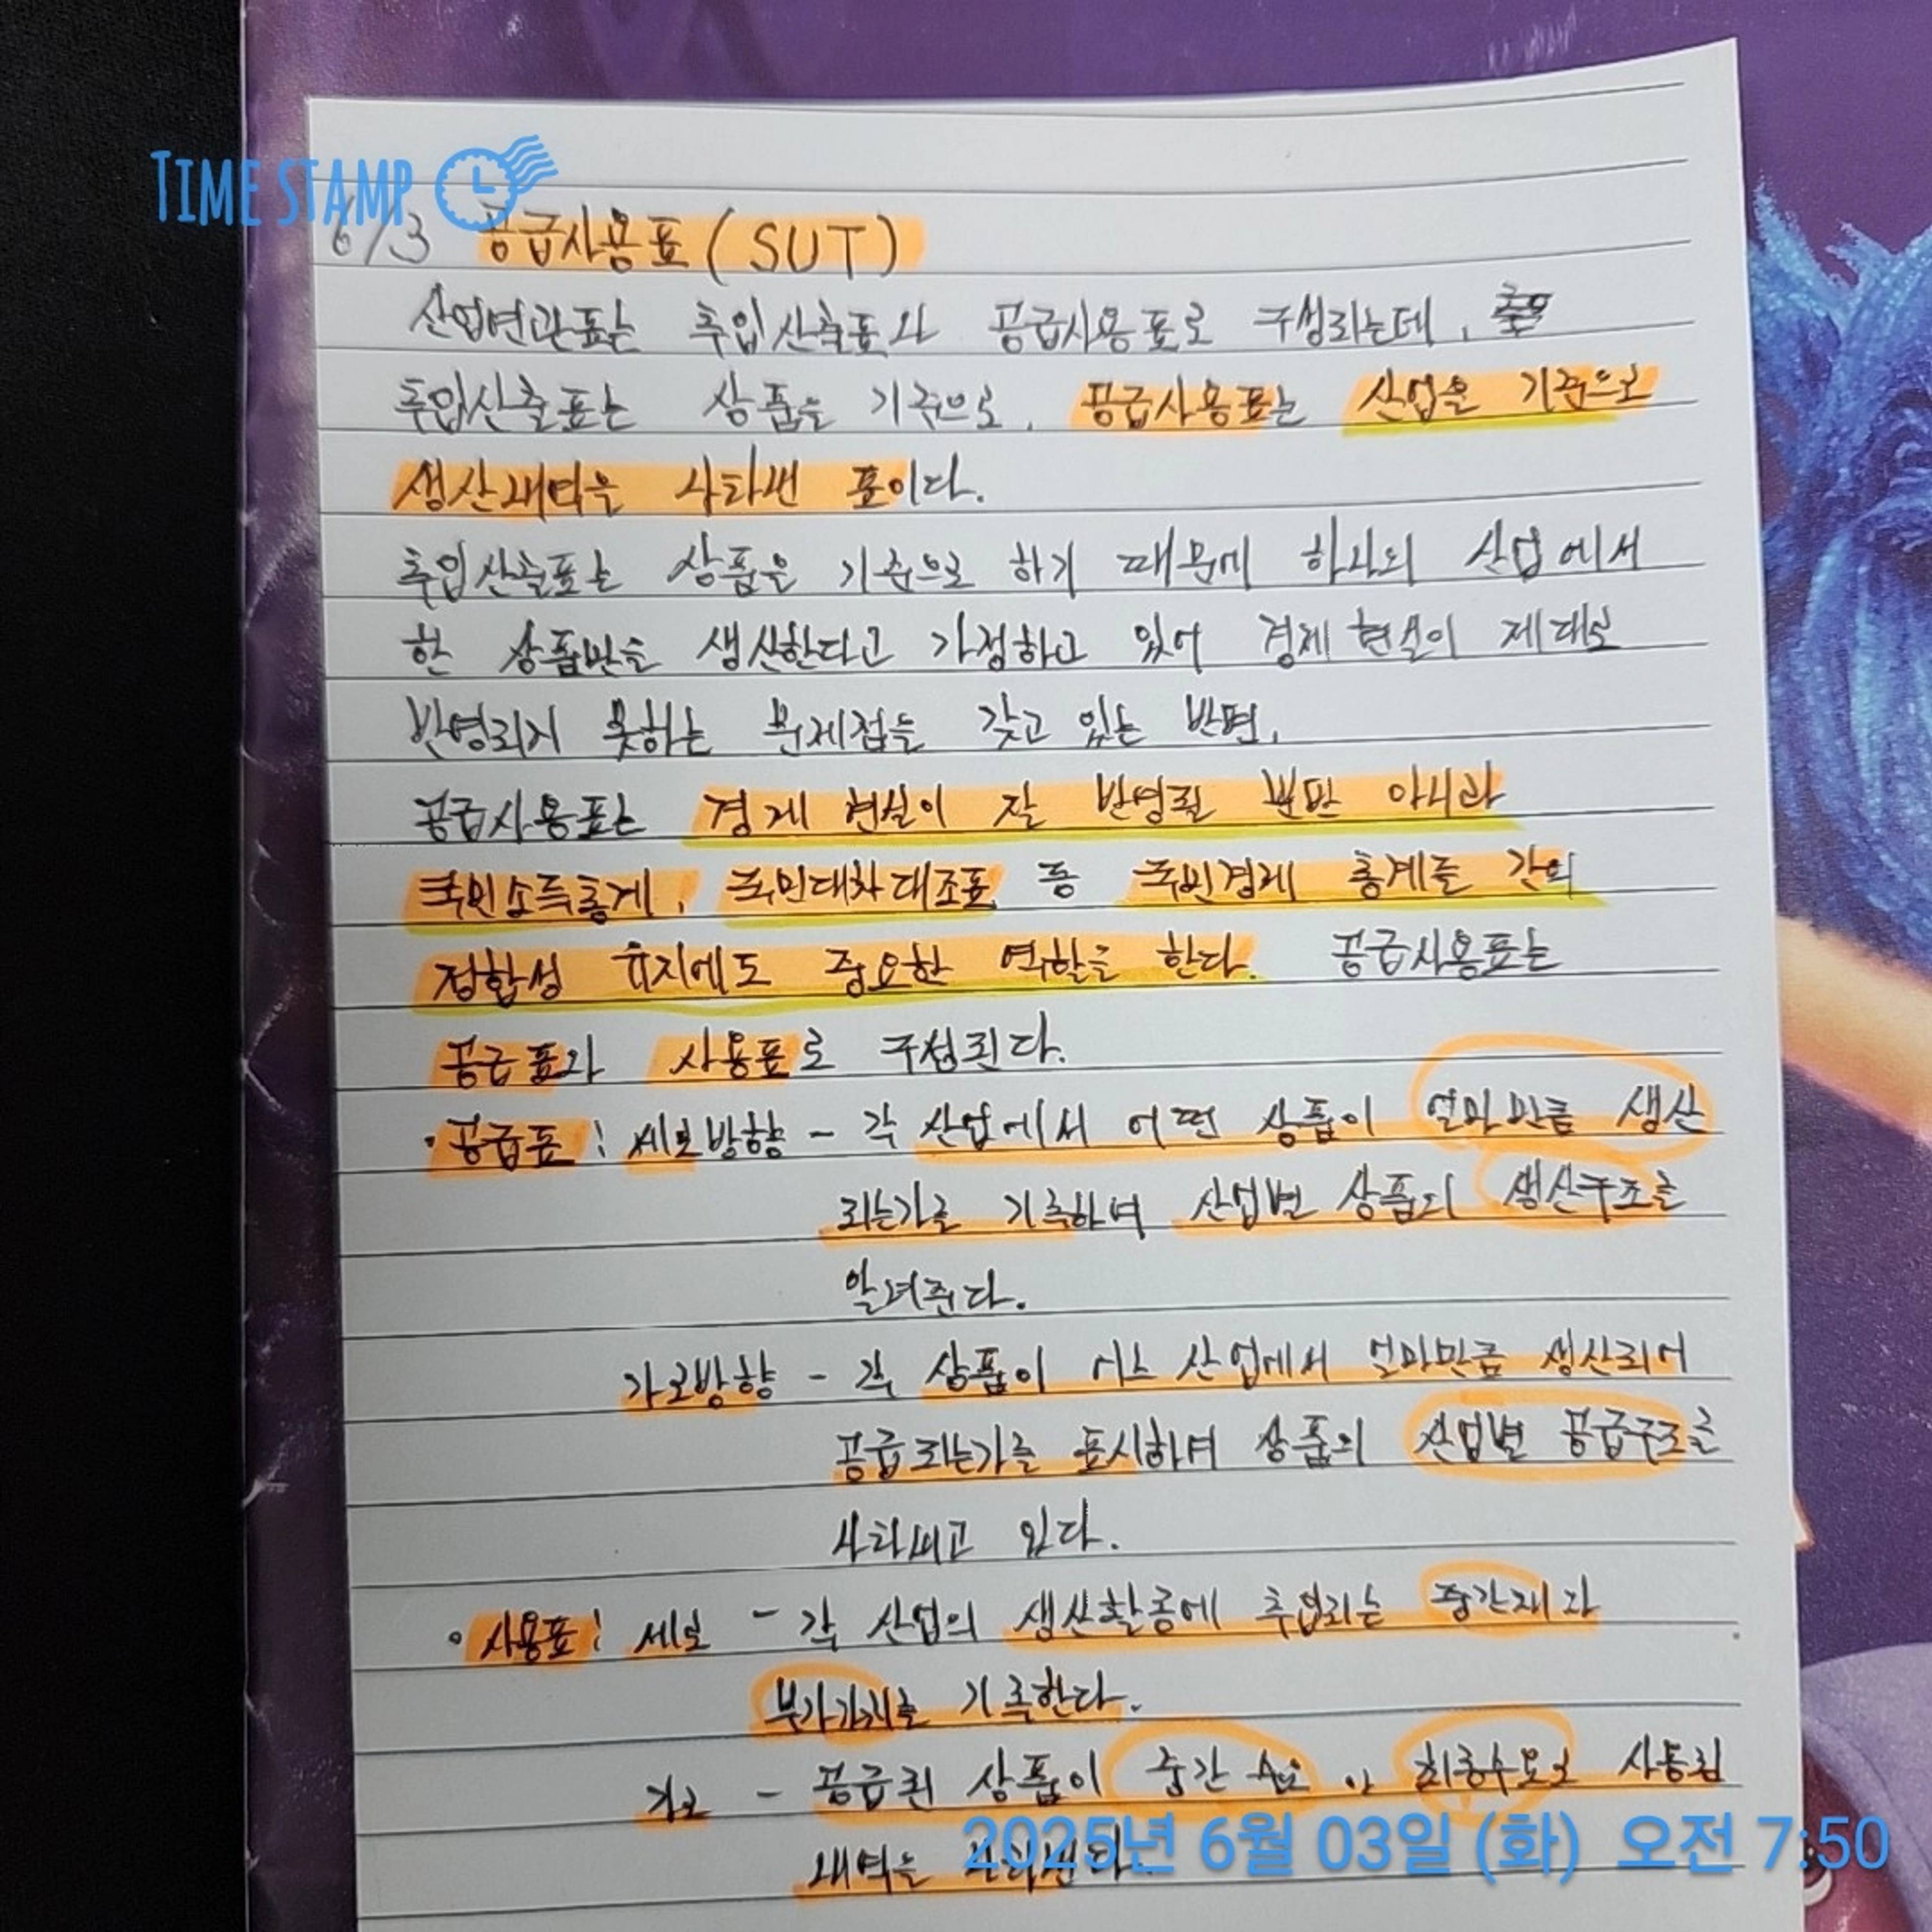 TIME STAMP
6/3 공급사용표(SUT)
산업연관표는 투입산출표와 공급사용표로 구성되는데,
투입산출표는 상품을 기준으로, 공급사용표는 산업을 기준으로
생산내역을 나타낸 표이다.
투입산출표는 상품을 기준으로 하기 때문에 하나의 산업에서
한 상품만을 생산한다고 가정하고 있어 경제현실이 제대로
반영되지 못하는 문제점을 갖고 있는 반면,
공급사용표는 경제 현실이 잘 반영될 뿐만 아니라
국민소득통계, 국민대차대조표 등 국민경제 통계들 간의
정합성 유지에도 중요한 역할을 한다. 공급사용표는
공급표와 사용표로 구성된다.
·공급표: 세로방향 - 각 산업에서 어떤 상품이 얼마만큼 생산
되는가를 기록하며 산업별 상품의 생산구조를
알려준다.
가로방향 - 각 상품이 어느 산업에서 얼마만큼 생산되어
공급되는가를 표시하며 상품의 산업별 공급구조를
나타내고 있다.
·사용표: 세로 - 각 산업의 생산활동에 투입되는 중간재와
부가가치를 기록한다.
가로 - 공급된 상품이 중간 수요 와 최종수요로 사용된
내역을 나타낸다.
2025년 6월 03일 (화) 오전 7:50